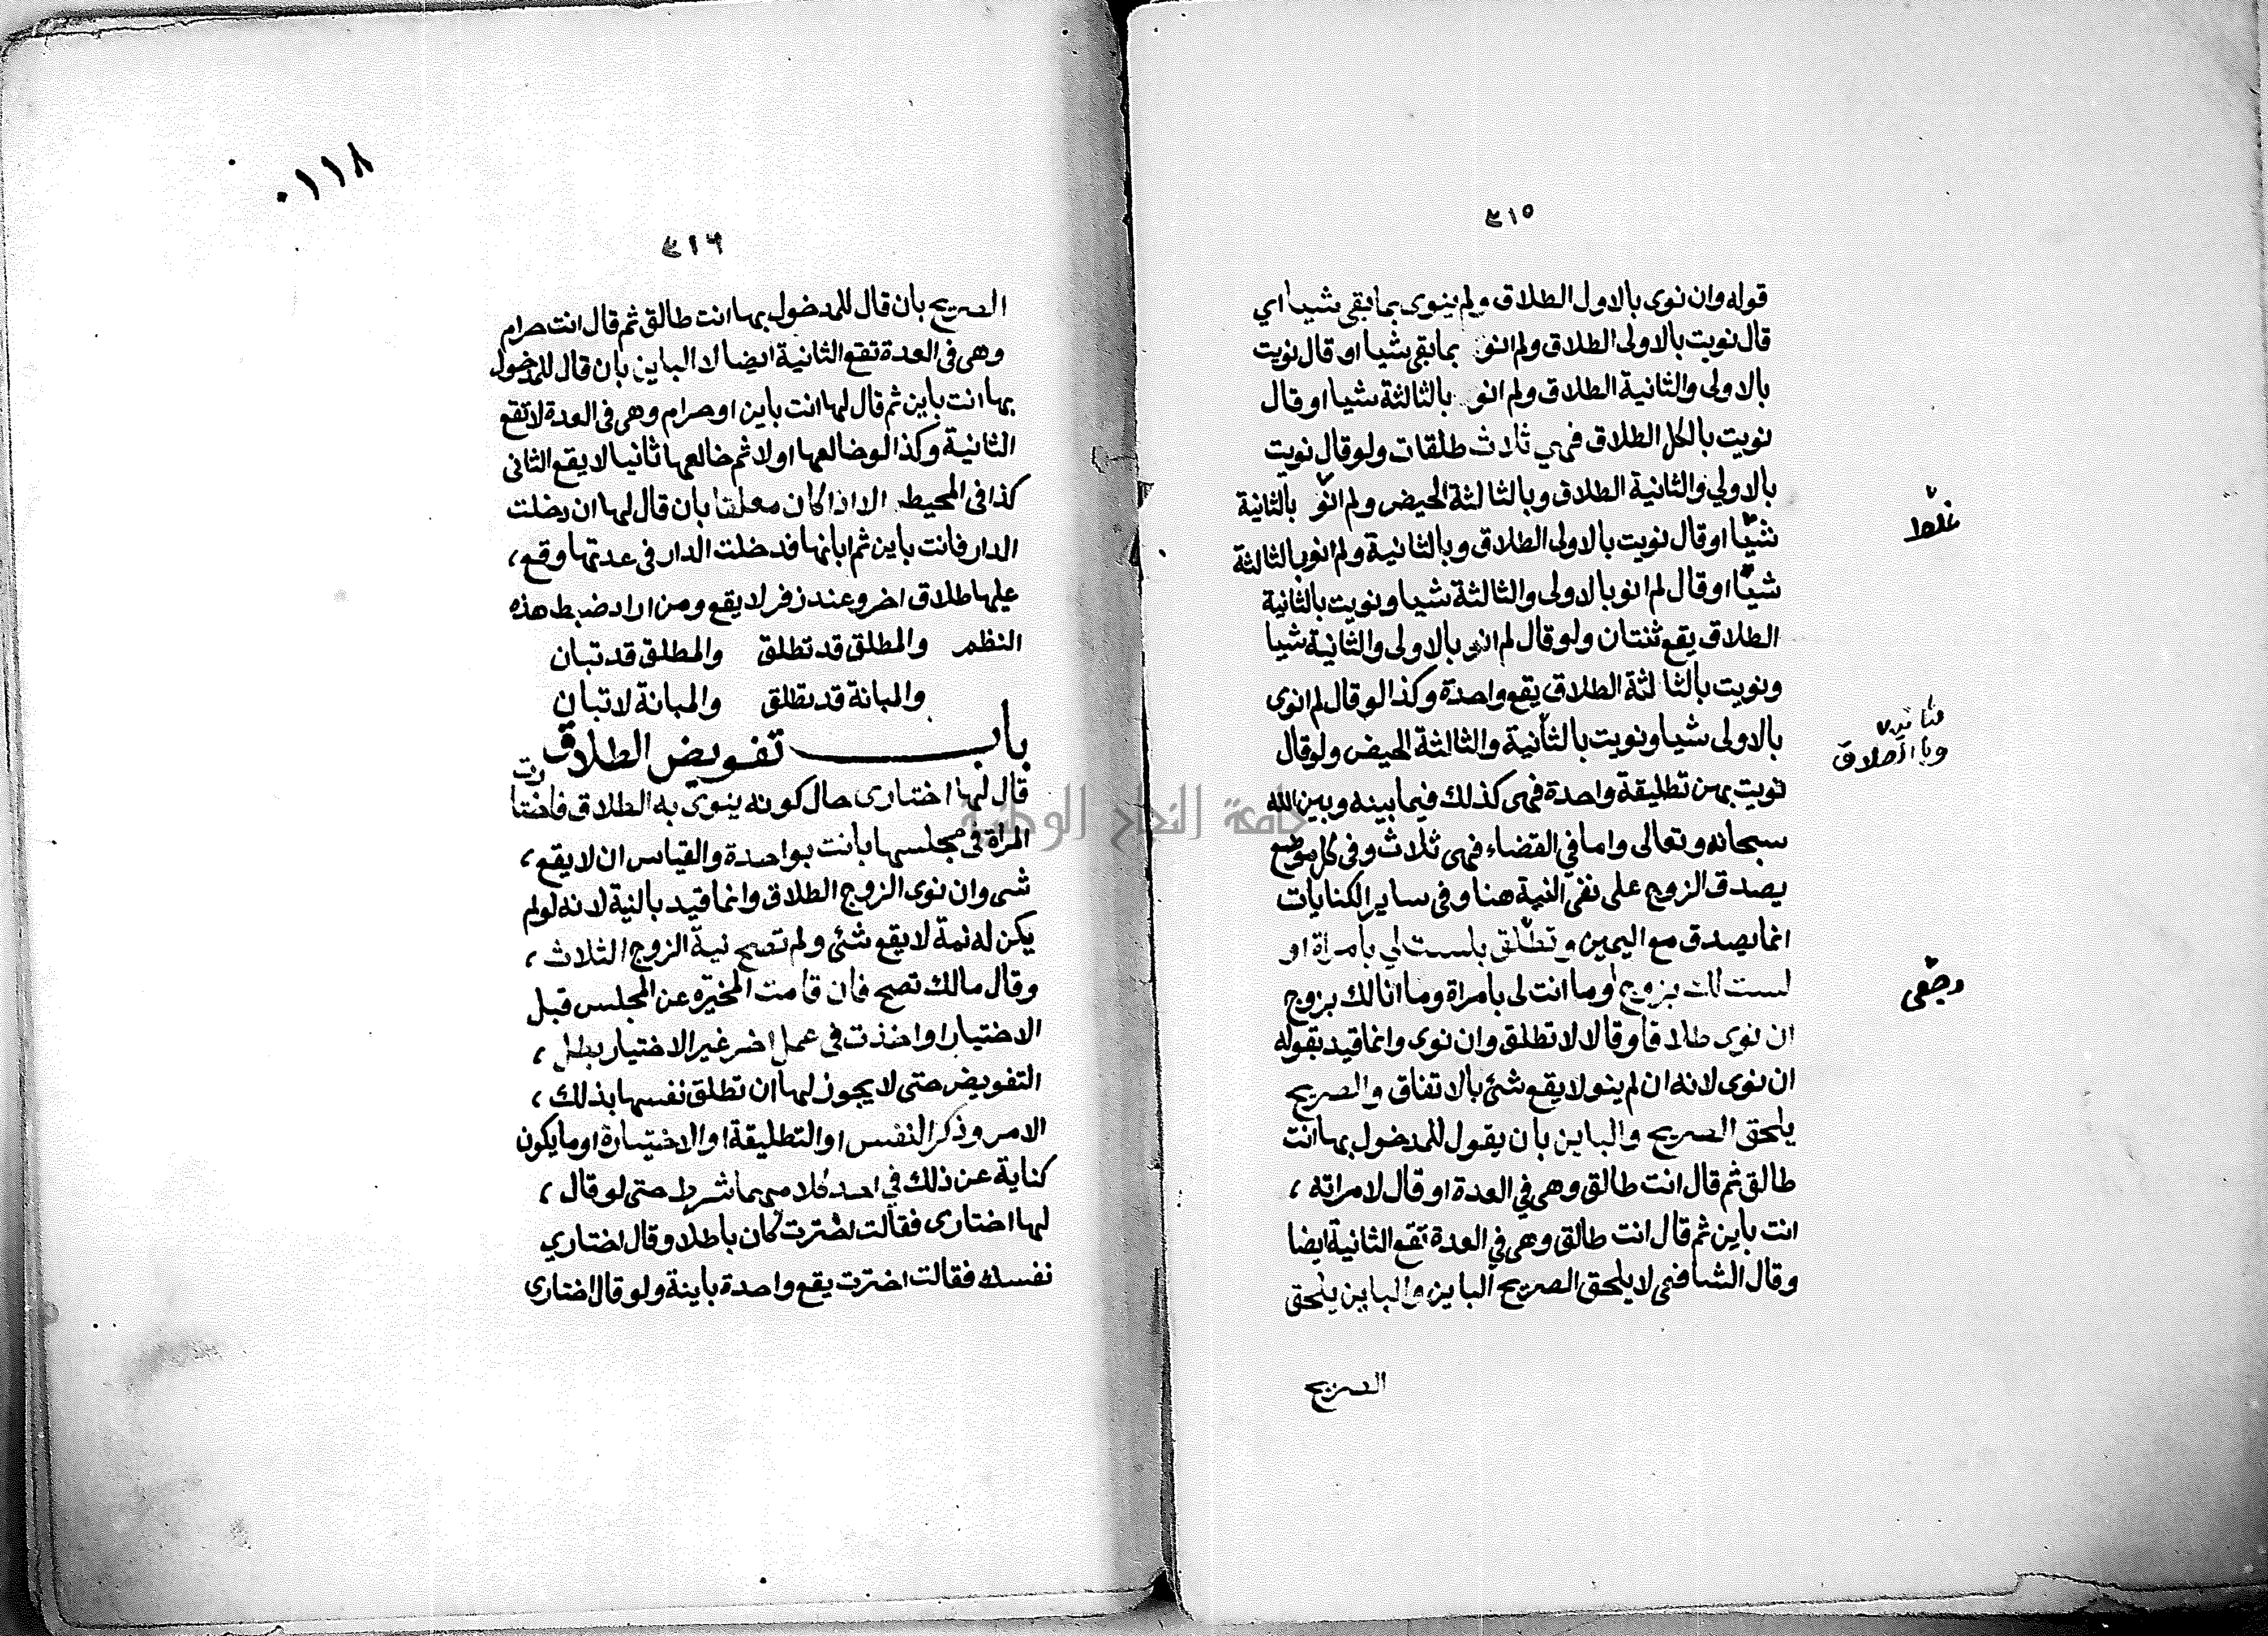 ٤١٥
قوله وان نوى بالاول الطلاق ولم ينوى بمابقى شيا اي
قال نويت بالاولى الطلاق ولم انو بمابقى شيا او قال نويت
بالاولى والثانية الطلاق ولم انو بالثالثة شيا او قال
نويت بالكل الطلاق فهي ثلاث طلقات ولو قال نويت
بالاولي والثانية الطلاق وبالثالثة الحيض ولم انو بالثانية
شيا او قال نويت بالاولى الطلاق وبالثانية ولم انو بالثالثة
شيا او قال لم انو بالاولى والثالثة شيا ونويت بالثانية
الطلاق يقع ثنتان ولو قال لم انو بالاولى والثانية شيا
ونويت بالثالثة الطلاق يقع واحدة وكذا لو قال لم انوى
بالاولى شيا ونويت بالثانية والثالثة الحيض ولو قال
نويت بهن تطليقة واحدة فهى كذلك فيما بينه وبين الله
سبحانه وتعالى واما في القضاء فهى ثلاث وفى كل موضع
يصدق الزوج على نفى النية هنا وفى ساير الكنايات
انما يصدق مع اليمين وتطلق بلست لي بامراة او
لست لك بزوج او ما انت لى بامراة وما انا لك بزوج
ان نوى طلاقا وقالا لا تطلق وان نوى وانما قيد بقوله
ان نوى لانه ان لم ينو لا يقع شئ بالاتفاق والصريح
يلحق الصريح والباين بان يقول للمدخول بها انت
طالق ثم قال انت طالق وهى في العدة او قال لامراته ،
انت باين ثم قال انت طالق وهى في العدة تقع الثانية ايضا
وقال الشافعى لا يلحق الصريح الباين والباين يلحق
الصريح
غلط
وبالطلاق
٠١١٨
٤١٦
الصريح بان قال للمدخول بها انت طالق ثم قال انت حرام
وهى فى العدة تقع الثانية ايضا لا الباين بان قال للمدخول
بها انت باين ثم قال لها انت باين او حرام وهى فى العدة لا تقع
الثانية وكذا لو خالعها اولا ثم خالعها ثانيا لا يقع الثانى
كذا فى المحيط الا اذا كان معلقا بان قال لها ان دخلت
الدار فانت باين ثم ابانها فدخلت الدار فى عدتها وقع ،
عليها طلاق اخر وعند زفر لا يقع ومن اراد ضبط هذه
النظم والمطلق قد تطلق والمطلق قد تبان
والمبانة قد تطلق والمبانة لا تبان
باب تفويض الطلاق
قال لها اختارى حال كونه ينوى به الطلاق فاختارت
المراة فى مجلسها بانت بواحدة والقياس ان لا يقع ،
شى وان نوى الزوج الطلاق وانما قيد بالنية لانه لو لم
يكن له نية لا يقع شئ ولم تصح نية الزوج الثلاث ،
وقال مالك تصح فان قامت المخيرة عن المجلس قبل
الاختيار او اخذت فى عمل اخر غير الاختيار بطل ،
التفويض حتى لا يجوز لها ان تطلق نفسها بذلك ،
الامر وذكر النفس او التطليقة او الاختيارة او ما يكون
كناية عن ذلك في احد كلاميهما شرط حتى لو قال ،
لها اختارى فقالت اخترت كان باطلا وقال اختاري
نفسك فقالت اخترت يقع واحدة باينة ولو قال اختارى
جامعة النجاح الوطنية